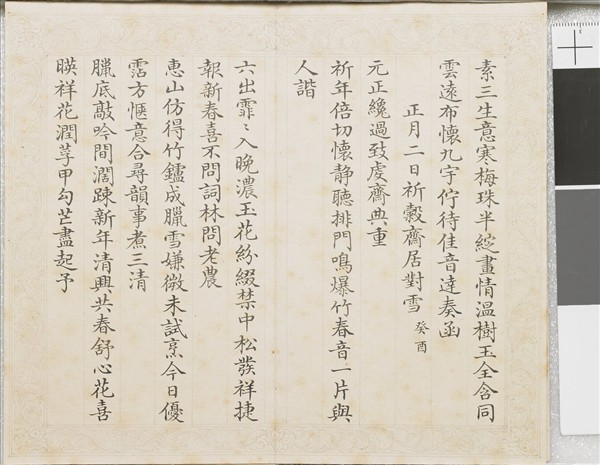 素三生意寒梅珠半綻畫情溫樹玉全含同
雲遠布懷九宇佇待佳音達奏函
正月二日祈穀齋居對雪 癸酉
元正纔過致虔齋典重
祈年倍切懷静聽排門鳴爆竹春音一片與
人諧
六出霏〻入晚濃玉花紛綴禁中松發祥捷
報新春喜不問詞林問老農
惠山仿得竹鑪成臘雪嫌微未試烹今日優
霑方愜意合尋韻事煮三清
臘底敲吟間濶踈新年清興共春舒心花喜
暎祥花潤莩甲勾芒盡起予